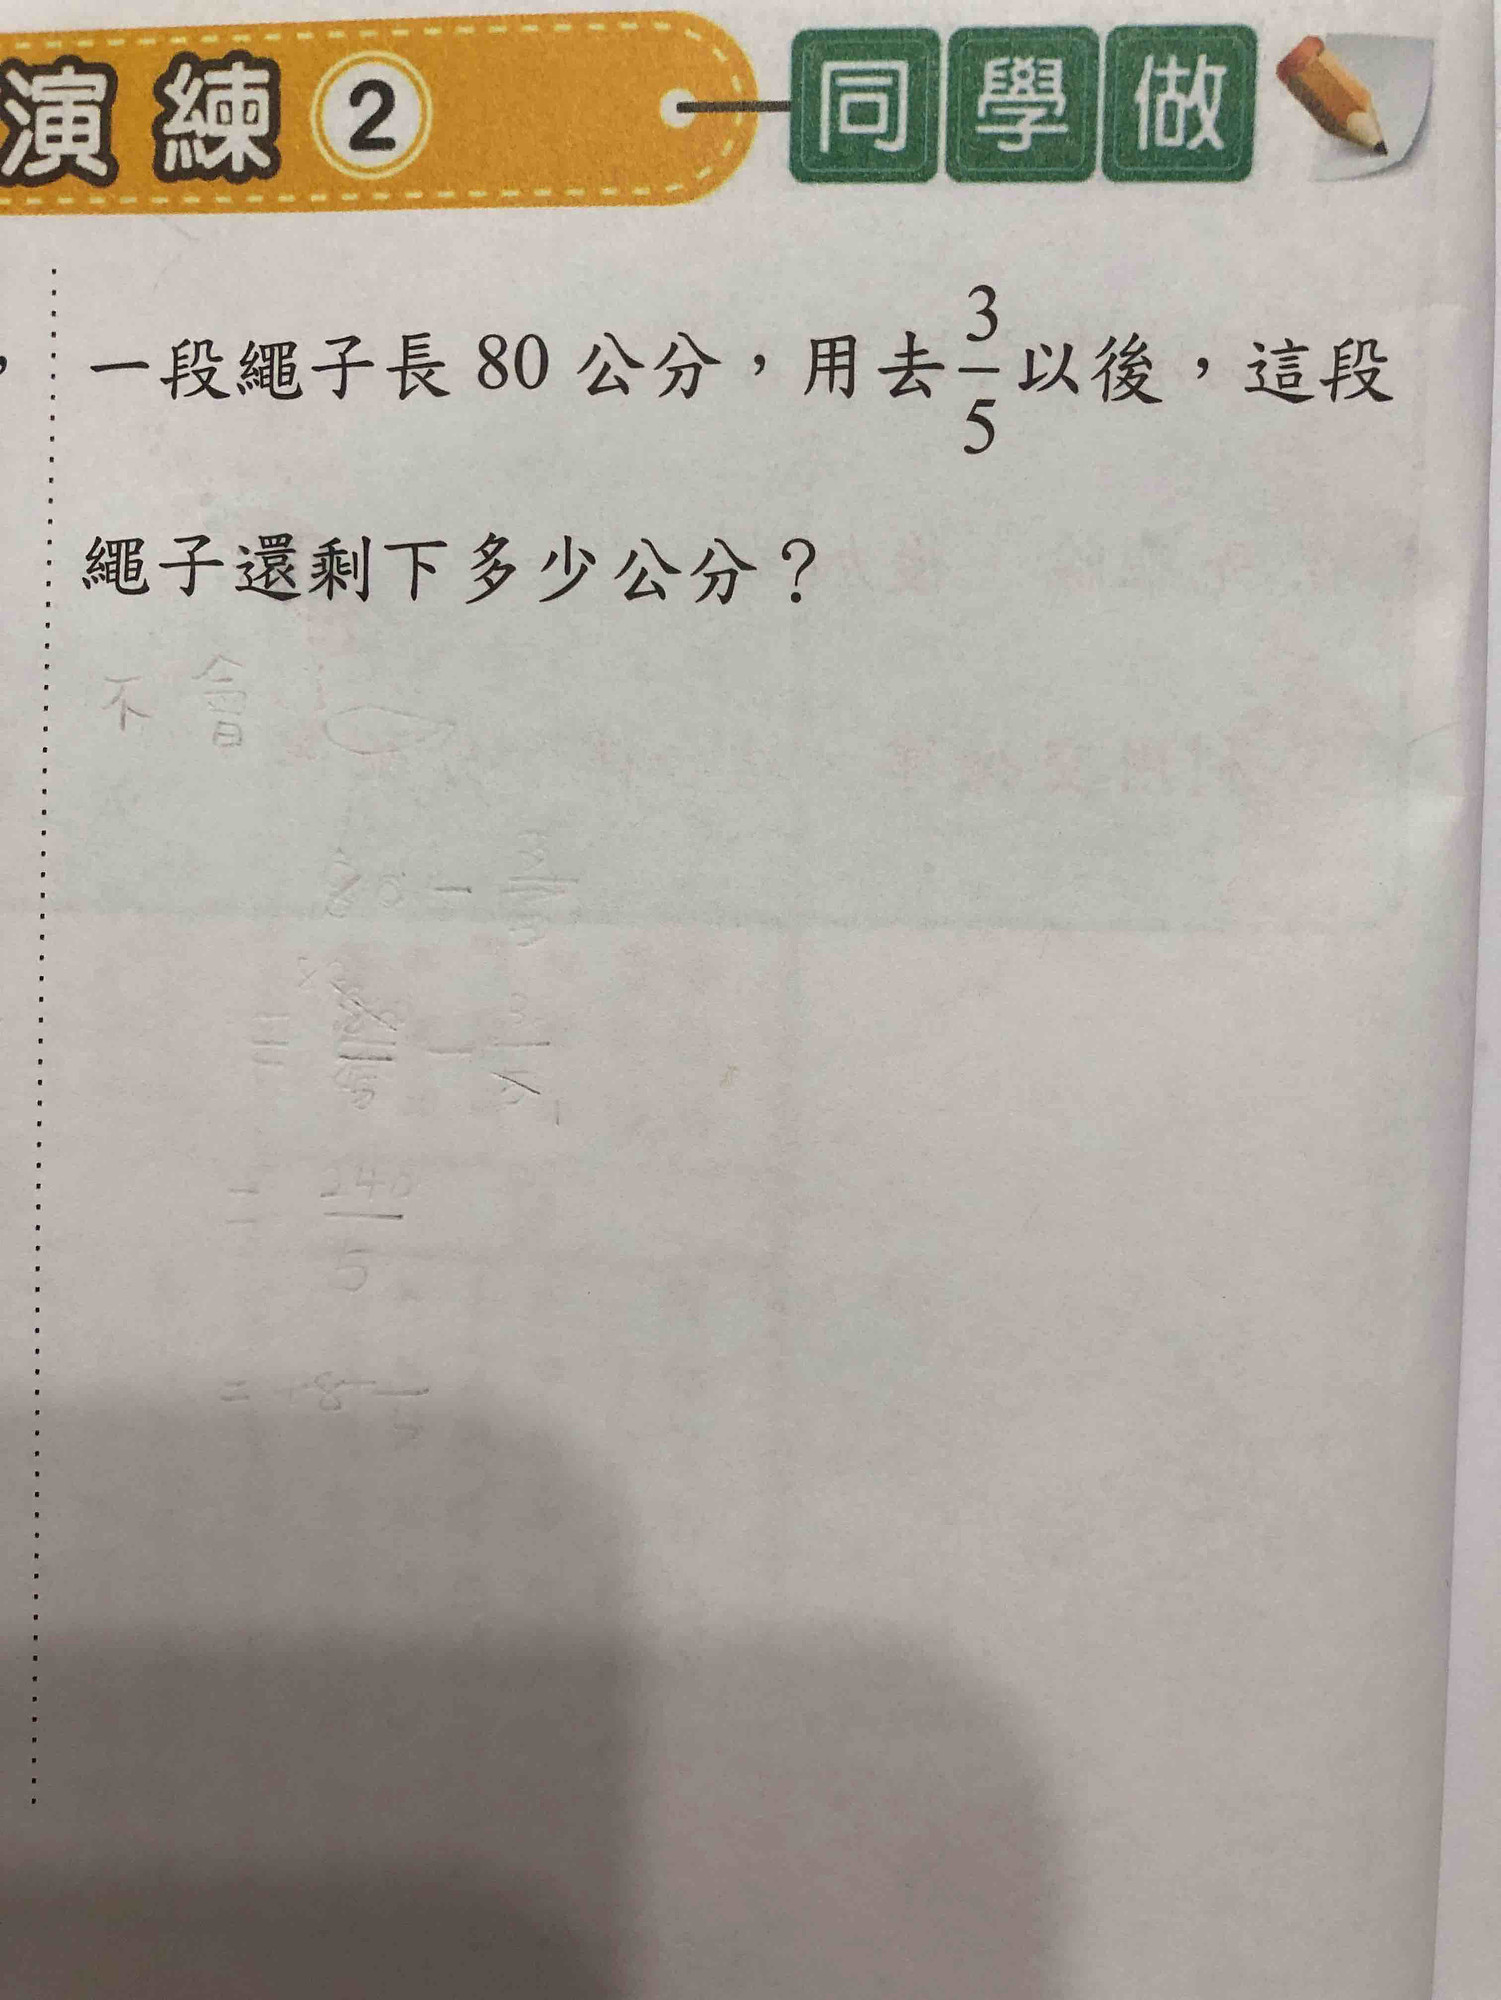 演練2 同學做
一段繩子長 80 公分，用去 3/5 以後，這段
繩子還剩下多少公分？
不會
80 -
=
= 240/5
=